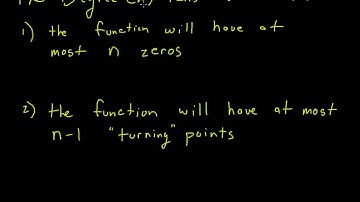 Degree
1) the function will have at
most n zeros
2) the function will have at most
n-1 "turning" points